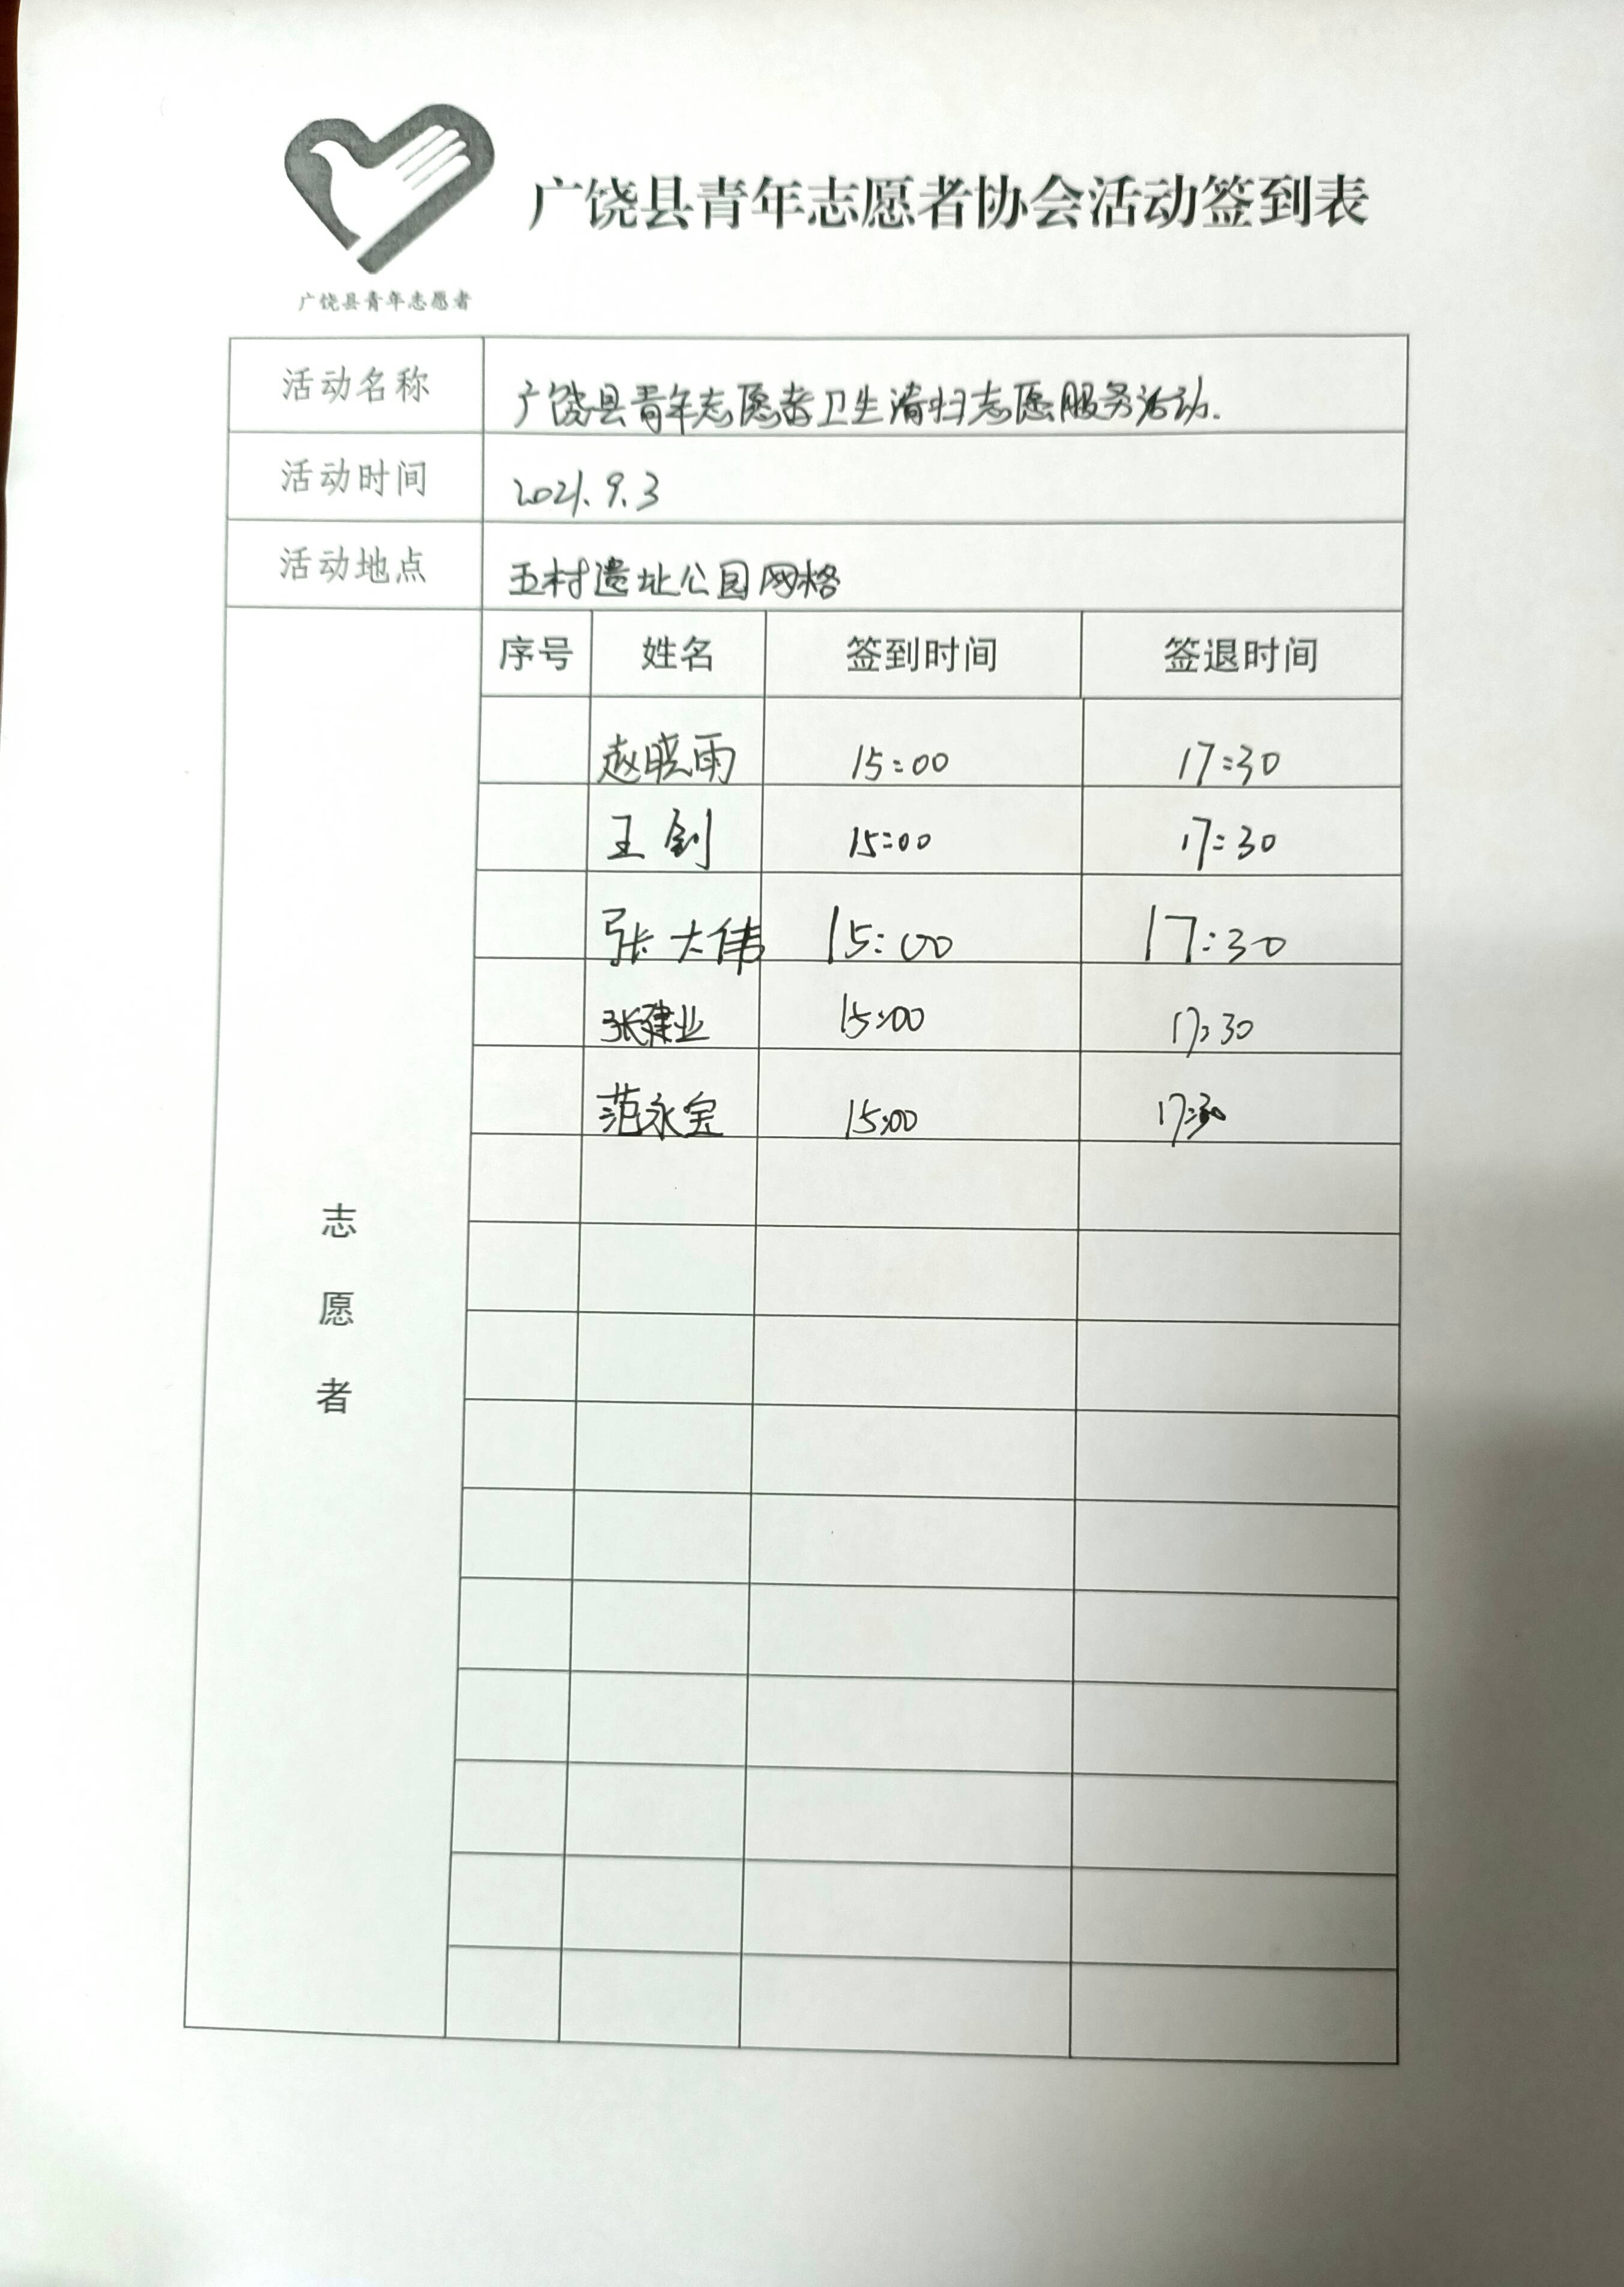 广饶县青年志愿者协会活动签到表
广饶县青年志愿者
活动名称 广饶县青年志愿者卫生清扫志愿服务活动.
活动时间 2021.9.3
活动地点 五村遗址公园网格
序号 姓名 签到时间 签退时间
赵晓雨 15:00 17:30
王剑 15:00 17:30
张大伟 15:00 17:30
张建业 15:00 17:30
范永宝 15:00 17:30
志
愿
者